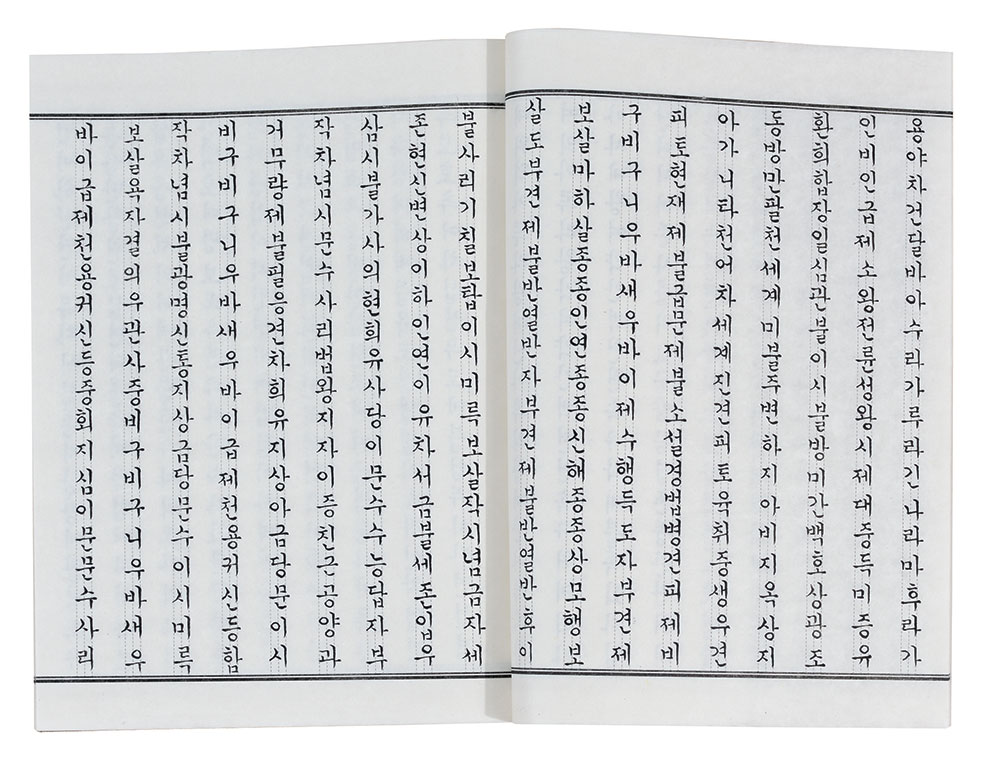 용야차건달바아수라가루라긴나라마후라가
인비인급제소왕전륜성왕시제대중득미증유
환희합장일심관불이시불방미간백호상광조
동방만팔천세계미불주변하지아비지옥상지
아가니타천어차세계진견피토육취중생우견
피토현재제불급문제불소설경법병견피제비
구비구니우바새우바이제수행득도자부견제
보살마하살종종인연종종신해종종상모행보
살도부견제불반열반자부견제불반열반후이
불사리기칠보탑이시미륵보살작시념금자세
존현신변상이하인연이유차서금불세존입우
삼시불가사의현희유사당이문수수능답자부
작차념시문수사리법왕지자이증친근공양과
거무량제불필응견차희유지상아금당문이시
비구비구니우바새우바이급제천용귀신등함
작차념시불광명신통지상금당문수이시미륵
보살욕자결의우관사중비구비구니우바새우
바이급제천용귀신등중회지심이문문수사리